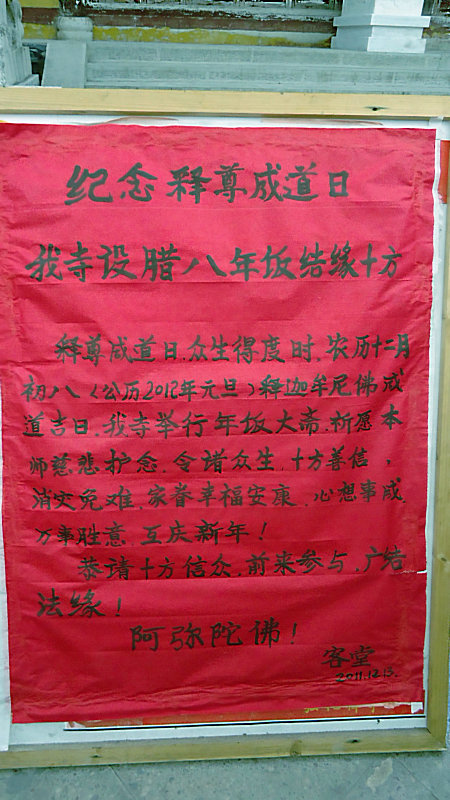 纪念释尊成道日
我寺设腊八年饭结缘十方
释尊成道日，众生得度时，农历十二月
初八（公历2012年元旦）释迦牟尼佛成
道吉日，我寺举行年饭大斋，祈愿本
师慈悲护念，令诸众生，十方善信，
消灾免难，家眷幸福安康，心想事成，
万事胜意，互庆新年！
恭请十方信众，前来参与，广结
法缘！
阿弥陀佛！
客堂
2011.12.13.